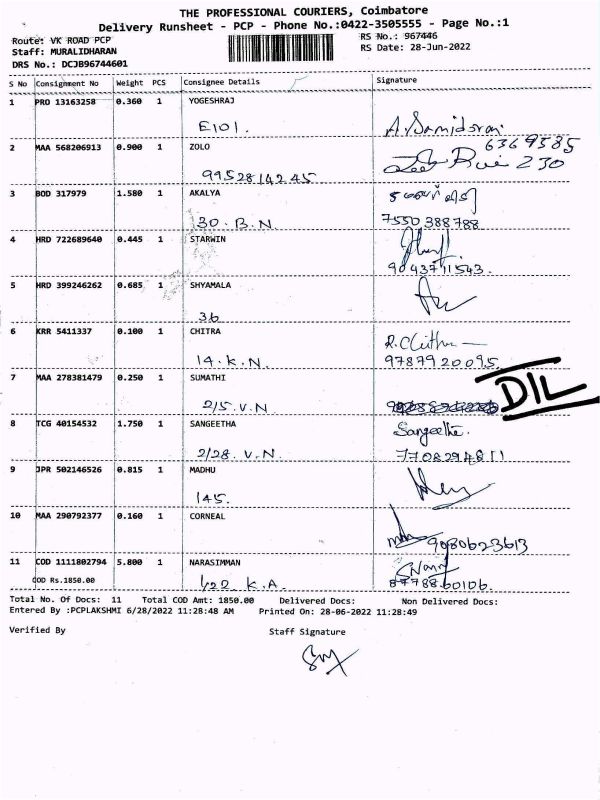 THE PROFESSIONAL COURIERS, Coimbatore
Delivery Runsheet - PCP - Phone No.:0422-3505555 - Page No.:1
Route: VK ROAD PCP
RS No.: 967446
Staff: MURALIDHARAN
RS Date: 28-Jun-2022
DRS No.: DCJB96744601
S No Consignment No Weight PCS Consignee Details Signature
1 PRO 13163258 0.360 1 YOGESHRAJ
E101.
2 MAA 568206913 0.900 1 ZOLO 6369585
230
9952814245
3 BOD 317979 1.580 1 AKALYA
30. B.N. 7550 388788
4 HRD 722689640 0.445 1 STARWIN
9043711543.
5 HRD 399246262 0.685 1 SHYAMALA
36
6 KRR 5411337 0.100 1 CHITRA R. Chithra
14. K.N. 9787920095
7 MAA 278381479 0.250 1 SUMATHI DIL
2/5. V.N
8 TCG 40154532 1.750 1 SANGEETHA Sangeetha.
2/28. V.N. 7708294811
9 JPR 502146526 0.815 1 MADHU
145.
10 MAA 290792377 0.160 1 CORNEAL
9080623613
11 COD 1111802794 5.800 1 NARASIMMAN
COD Rs.1850.00 1/22 K.A. 87788 60106.
Total No. Of Docs: 11 Total COD Amt: 1850.00 Delivered Docs: Non Delivered Docs:
Entered By :PCPLAKSHMI 6/28/2022 11:28:48 AM Printed On: 28-06-2022 11:28:49
Verified By Staff Signature